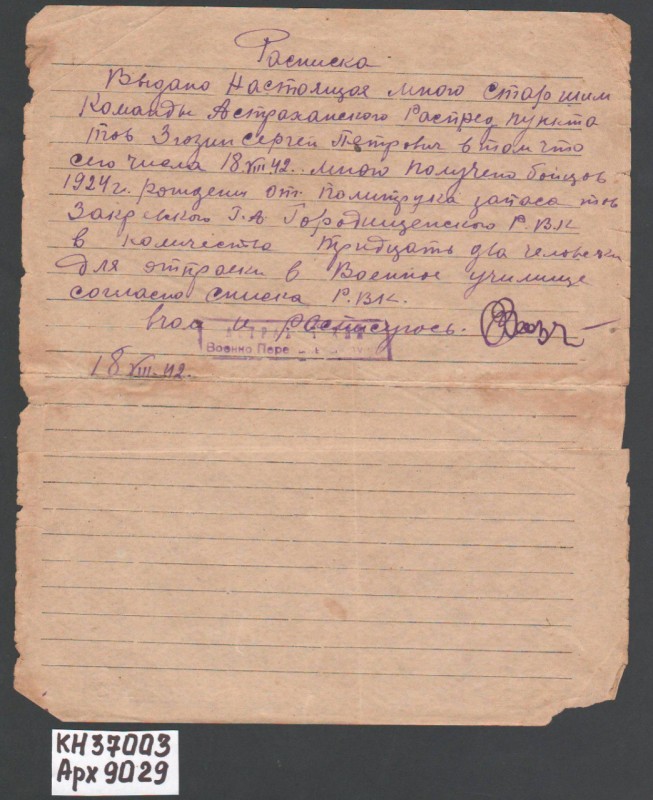 Расписка
Выдано Настоящая мною старшим
Команды Астраханского Распред пункта
тов Згозин Сергей Петрович в том что
сего числа 18.VIII.42.. мною получено бойцов
1924 г. рождени от политрука запаса тов
Г.А Городищенского Р.ВК
в количества тридцать два человека
для отправки в Военное училище
согласно списка Р.ВК.
и расписуюсь.
Военно Пере
18 VIII. 42.
КН37003
Арх9029